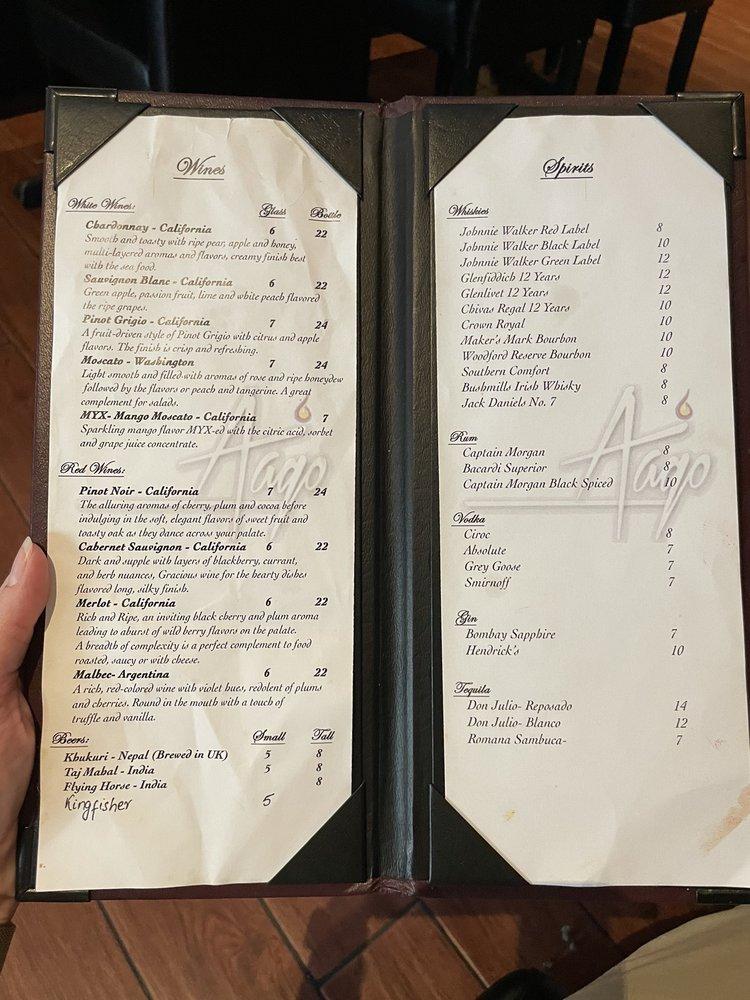 Wines
White Wines: Glass Bottle
Chardonnay - California 6 22
Smooth and toasty with ripe pear, apple and honey,
multi-layered aromas and flavors, creamy finish best
with the sea food.
Sauvignon Blanc - California 6 22
Green apple, passion fruit, lime and white peach flavored
the ripe grapes.
Pinot Grigio - California 7 24
A fruit-driven style of Pinot Grigio with citrus and apple
flavors. The finish is crisp and refreshing.
Moscato - Washington 7 24
Light smooth and filled with aromas of rose and ripe honeydew
followed by the flavors or peach and tangerine. A great
complement for salads.
MYX- Mango Moscato - California 7
Sparkling mango flavor MYX-ed with the citric acid, sorbet
and grape juice concentrate.
Red Wines:
Pinot Noir - California 7 24
The alluring aromas of cherry, plum and cocoa before
indulging in the soft, elegant flavors of sweet fruit and
toasty oak as they dance across your palate.
Cabernet Sauvignon - California 6 22
Dark and supple with layers of blackberry, currant,
and herb nuances, Gracious wine for the hearty dishes
flavored long, silky finish.
Merlot - California 6 22
Rich and Ripe, an inviting black cherry and plum aroma
leading to aburst of wild berry flavors on the palate.
A breadth of complexity is a perfect complement to food
roasted, saucy or with cheese.
Malbec- Argentina 6 22
A rich, red-colored wine with violet hues, redolent of plums
and cherries. Round in the mouth with a touch of
truffle and vanilla.
Beers: Small Tall
Khukuri - Nepal (Brewed in UK) 5 8
Taj Mahal - India 5 8
Flying Horse - India 8
Kingfisher 5
Aago
Spirits
Whiskies
Johnnie Walker Red Label 8
Johnnie Walker Black Label 10
Johnnie Walker Green Label 12
Glenfiddich 12 Years 12
Glenlivet 12 Years 12
Chivas Regal 12 Years 10
Crown Royal 10
Maker's Mark Bourbon 10
Woodford Reserve Bourbon 10
Southern Comfort 8
Bushmills Irish Whisky 8
Jack Daniels No. 7 8
Rum
Captain Morgan 8
Bacardi Superior 8
Captain Morgan Black Spiced 10
Vodka
Ciroc 8
Absolute 7
Grey Goose 7
Smirnoff 7
Gin
Bombay Sapphire 7
Hendrick's 10
Tequila
Don Julio- Reposado 14
Don Julio- Blanco 12
Romana Sambuca- 7
Aago